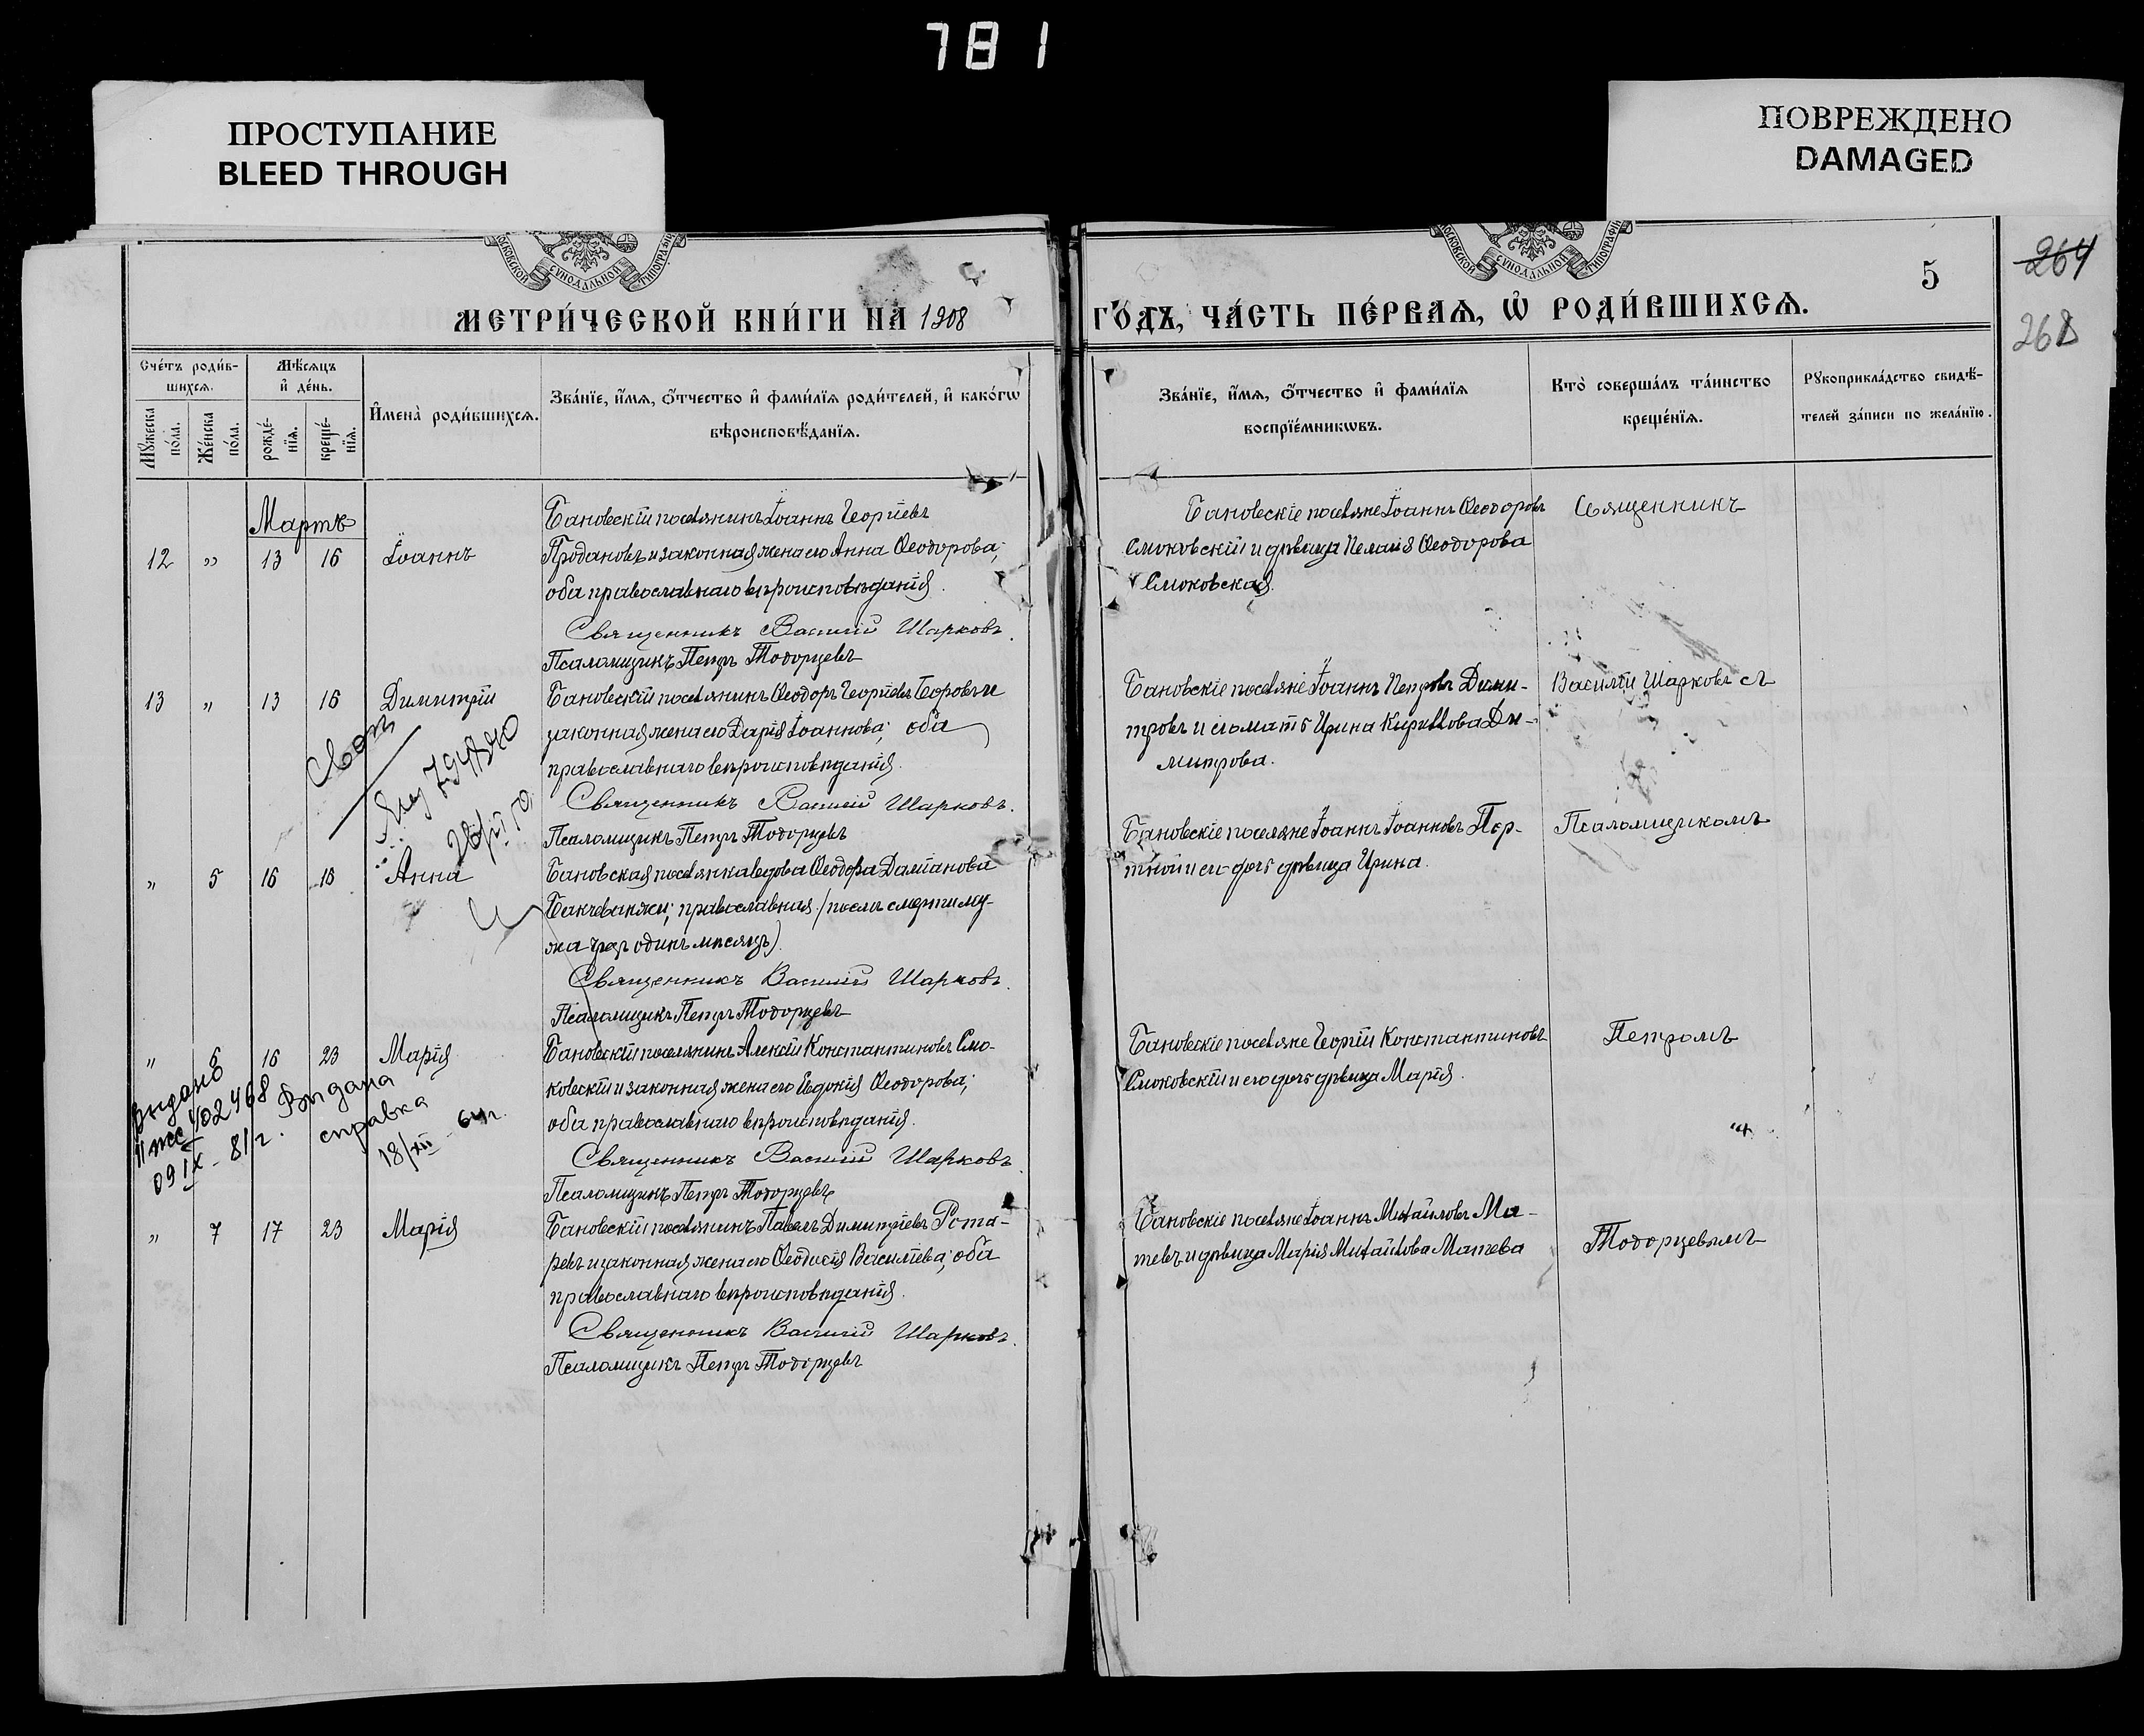 781
ПРОСТУПАНИЕ
BLEED THROUGH
ПОВРЕЖДЕНО
DAMAGED
МОСКОВСКОЙ СѴНОДАЛЬНОЙ ТИПОГРАФІИ
МОСКОВСКОЙ СѴНОДАЛЬНОЙ ТИПОГРАФІИ
5
264
268
МЕТРИ́ЧЕСКОЙ КНИ́ГИ НА 1908
ГО́ДЪ, ЧА́СТЬ ПЕ́РВАѦ, Ѡ҆ РОДИ́ВШИХСѦ.
Сче́тъ роди́в-
шихсѧ.
Мѣ́сѧцъ
и҆ де́нь.
Мꙋ́жеска по́ла.
Же́нска по́ла.
рожде́-
нїѧ.
креще́-
нїѧ.
И҆мена̀ роди́вшихсѧ.
Зва́нїе, и҆́мѧ, ѻ҆́тчество и҆ фами́лїѧ роди́телей, и҆ како́гѡ
вѣроисповѣ́данїѧ.
Зва́нїе, и҆́мѧ, ѻ҆́тчество и҆ фами́лїѧ
воспрїе́мникѡвъ.
Кто̀ соверша́лъ та́инство
креще́нїѧ.
Рꙋкоприкла́дство свидѣ́-
телей за́писи по жела́нїю.
Мартъ
12 " 13 16 Іоаннъ
Бановскій поселянинъ Іоаннъ Георгіевъ
Продановъ и законная жена его Анна Ѳеодорова;
оба православнаго вѣроисповѣданія.
Священникъ Василій Шарковъ.
Псаломщикъ Петръ Тодорцевъ
Бановскіе поселяне Іоаннъ Ѳеодоровъ
Смоковскій и дѣвица Пелагія Ѳеодорова
Смоковская.
Священникъ
13 " 13 16 Димитрій
Бановскій поселянинъ Ѳеодоръ Георгіевъ Боровъ и
законная жена его Дарія Іоаннова; оба
православнаго вѣроисповѣданія.
Священникъ Василій Шарковъ.
Псаломщикъ Петръ Тодорцевъ
Бановскіе поселяне Іоаннъ Петровъ Дими-
тровъ и его мать Ирина Кириллова Ди-
митрова.
Василій Шарковъ съ
" 5 16 18 Анна
Бановская поселянка вдова Ѳеодора Даміанова
православная (послѣ смерти му-
жа чрезъ одинъ мѣсяцъ).
Священникъ Василій Шарковъ.
Псаломщикъ Петръ Тодорцевъ
Бановскіе поселяне Іоаннъ Іоанновъ Пор-
тной и его дочь дѣвица Ирина.
Псаломщикомъ
" 6 16 23 Марія
Бановскій поселянинъ Алексій Константиновъ Смо-
ковскій и законная жена его Евдокія Ѳеодорова;
оба православнаго вѣроисповѣданія.
Священникъ Василій Шарковъ.
Псаломщикъ Петръ Тодорцевъ
Бановскіе поселяне Георгій Константиновъ
Смоковскій и его дочь дѣвица Марія.
Петромъ
Выдано
402468
09 IX - 81 г.
Выдана
справка
18/XII - 64 г.
" 7 17 23 Марія
Бановскій поселянинъ Павелъ Димитріевъ Рота-
ревъ и законная жена его Ѳеодосія Василіева; оба
православнаго вѣроисповѣданія.
Священникъ Василій Шарковъ.
Псаломщикъ Петръ Тодорцевъ
Бановскіе поселяне Іоаннъ Михайловъ Ма-
тевъ и дѣвица Марія Михайлова Матева
Тодорцевымъ